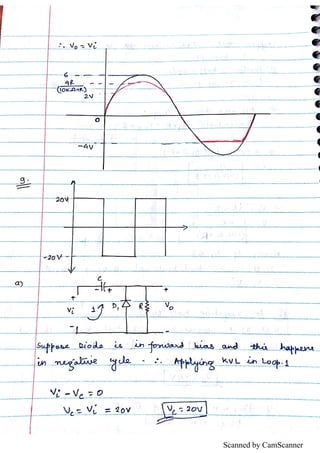 ∴ Vo = Vi
6
9R
(10KΩ+R)
2V
0
-4V
9.
20V
-20V
a)
C
- +
+ + +
Vi 1 D1 R Vo
- -
Suppose Diode is in forward bias and this happens
in negative cycle. ∴ Applying KVL in Loop.1
Vi - Vc = 0
Vc = Vi = 20V Vc = 20V
Scanned by CamScanner